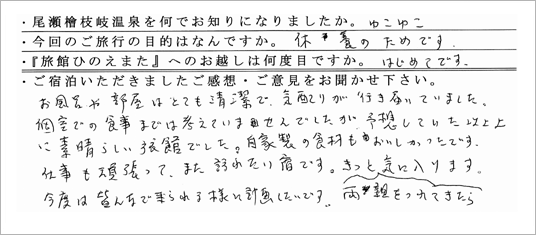 ・尾瀬檜枝岐温泉を何でお知りになりましたか。ゆこゆこ
・今回のご旅行の目的はなんですか。休養のためです。
・『旅館ひのえまた』へのお越しは何度目ですか。はじめてです。
・ご宿泊いただきましたご感想・ご意見をお聞かせ下さい。
お風呂や部屋はとても清潔で、気配りが行き届いていました。
個室での食事までは考えていませんでしたが、予想していた以上
に素晴らしい旅館でした。自家製の食材もおいしかったです。
仕事も頑張って、また訪れたい宿です。きっと気に入ります。
今度は皆んなで来られる様に計画したいです。両親をつれてきたら